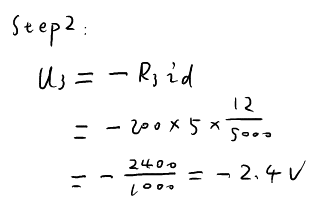 Step2:
U₃ = - R₃ id
= - 200 × 5 × 12/5000
= - 2400/1000 = - 2.4 V